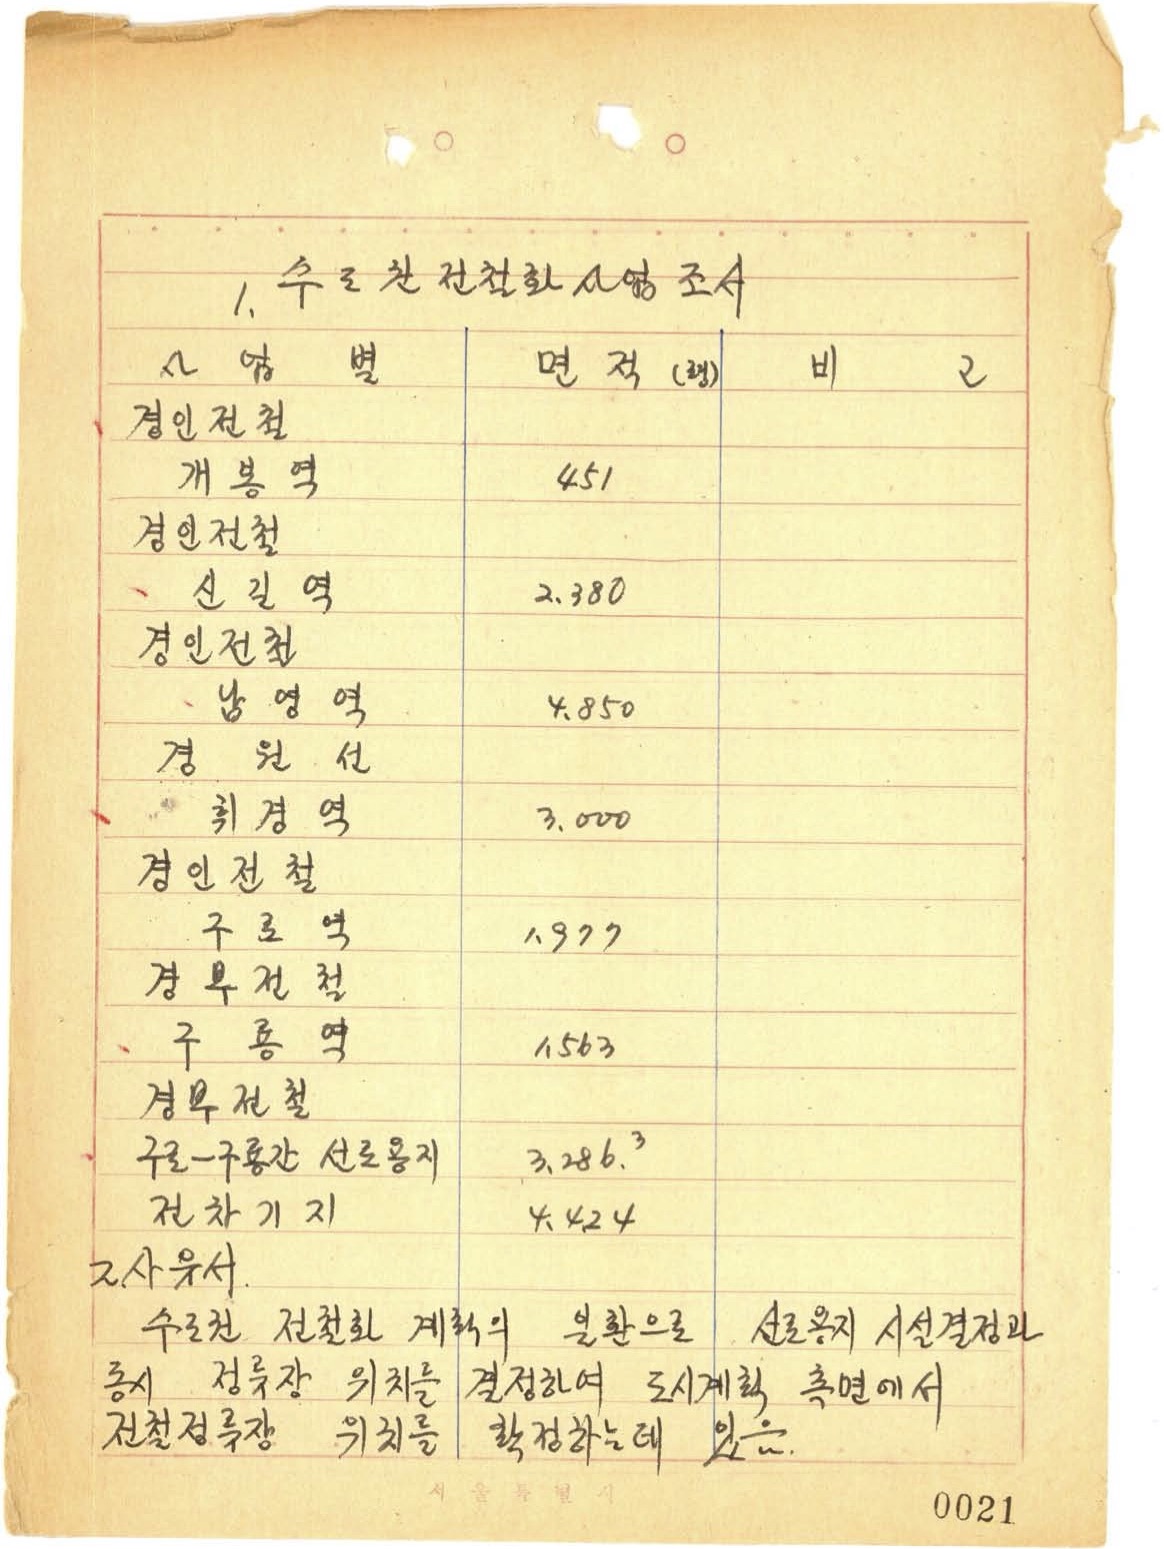 1. 수도권전철화사업조서
사업별 면적(평) 비고
경인전철
개봉역 451
경인전철
신길역 2.380
경인전철
남영역 4.850
경원선
휘경역 3.000
경인전철
구로역 1.977
경부전철
구룡역 1.563
경부전철
구로-구룡간 선로용지 3.286.3
전차기지 4.424
2. 사유서.
수도권 전철화 계획의 일환으로 선로용지 시설결정과
동시 정류장 위치를 결정하여 도시계획 측면에서
전철정류장 위치를 확정하는데 있음.
서울특별시
0021